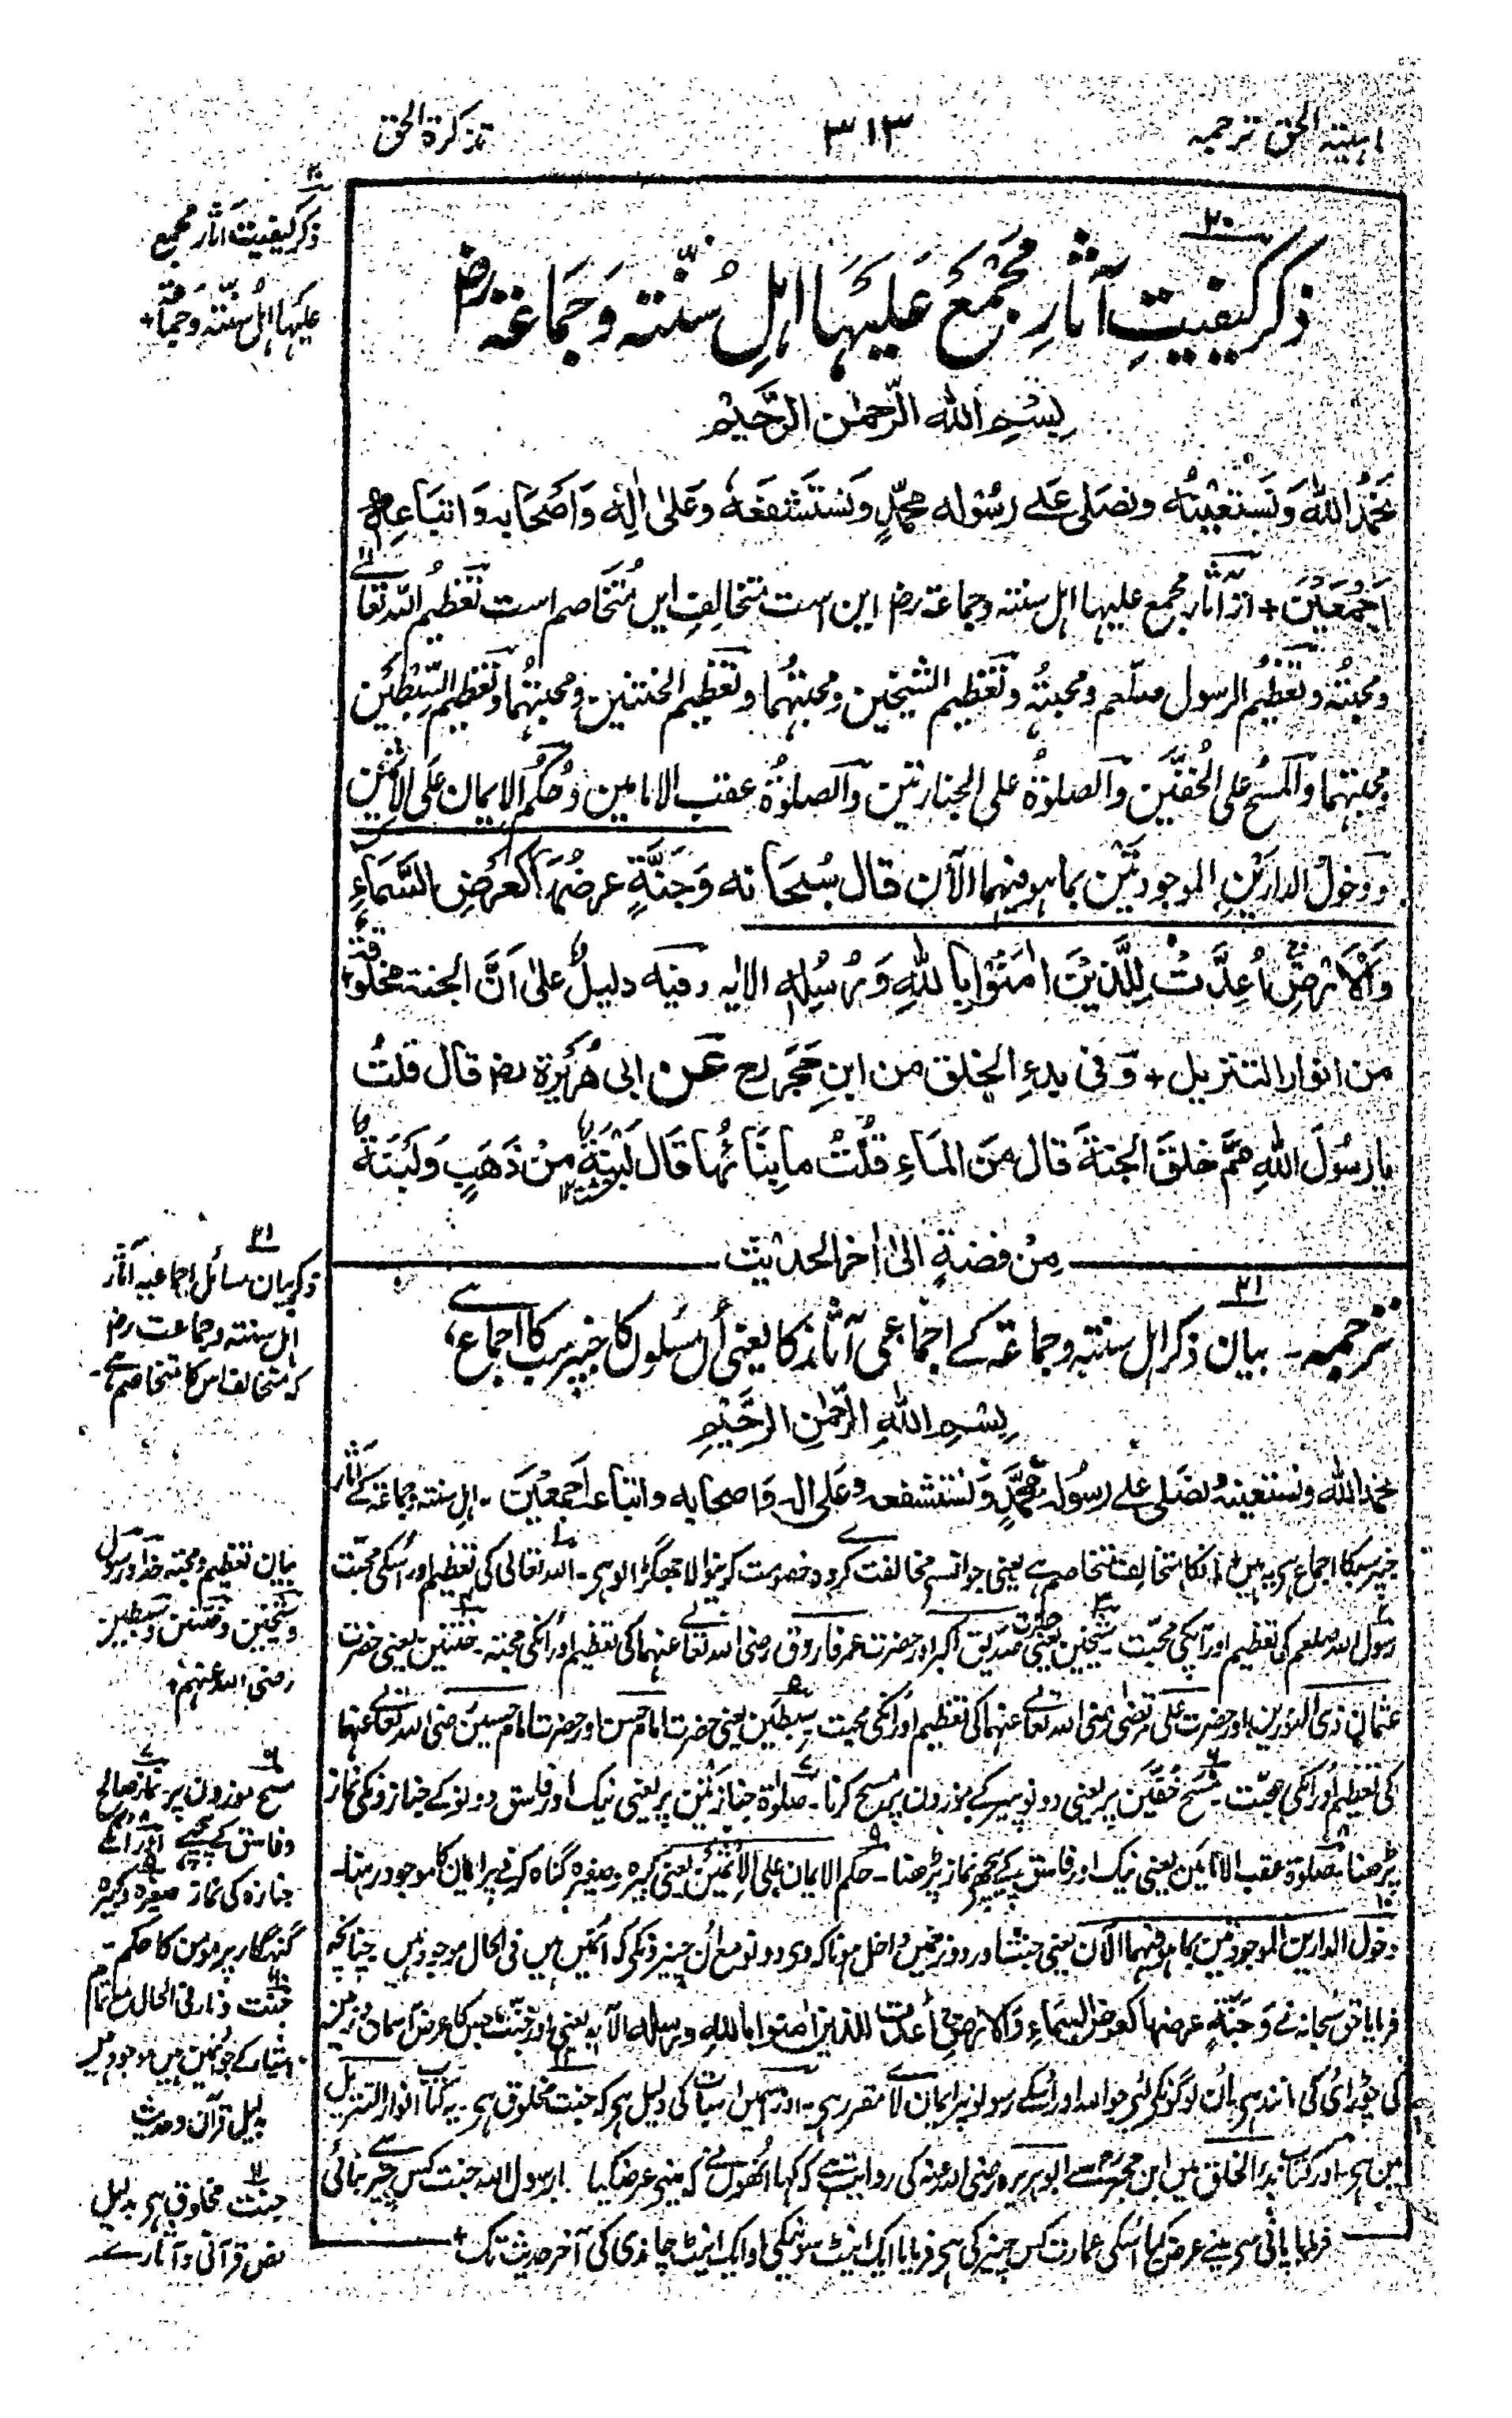 اہنیۃ الحق ترجمہ ۳۱۳ تذکرۃ الحق
۲۰
ذکر کیفیت آثار مجمع
علیہا اہل سنتہ وجماعۃ
۲۰
ذکر کیفیتِ آثارِ مجمَع عَلیہَا اہلِ سُنّتہ وَجَمَاعَۃ رض
بِسْمِ اللہِ الرَّحمٰنِ الرَّحِیْمِ
نَحمَدُ اللہَ وَنَستَعِیْنُہ ونصَلی عَلے رسُوْلِہ محمَّدٍ وَنَستَشفَعُہ وعَلیٰ اٰلِہٖ وَاَصْحَابِہ وَاَتبَاعِہٖ
اَجْمَعِیْنَ + از آثار مجمع علیہا اہل سنتہ وجماعۃ رض این است متخالِفِ ایں مُتخَاصم است تَعْظِیمُ اللہ تعَالٰے
ومحبتُہ وتَعْظِیمُ الرسول صلعم ومحبتُہ وتَعْظِیم الشیخین ومحبتُہُما وتَعْظِیم الختنین ومحبتُہُما وتَعْظِیم السِبْطَیْن
ومحبتہما وَالمَسْحُ علی الخُفَّیَن وَالصلوٰۃُ علی الجنازتین وَالصلوٰۃُ عقب الامامین وَحُکمُ الایمان عَلَی الاِثمَیْن
ودخولُ الدارَیْنِ الموجودتَیْن بما ہو فیہما الآن قال سُبحَانہ وَجَنَّۃٍ عرضُہَا کَعَرْضِ السَّمَاءِ
وَالْاَرْضِ اُعِدَّتْ لِلَّذِیْنَ اٰمَنُوْا بِاللہِ وَرُسُلِہٖ الایہ وفیہ دلیلٌ علیٰ اَنَّ الجنۃ مخلوقۃ
من انوار التنزیل + وَفی بدءِ الخلق من ابنِ حَجَر رح عَن ابی ہُرَیْرَۃ رض قال قلتُ
یا رسُولَ اللہِ مِمَّ خلقَ الجنۃَ قال مِنَ المَاءِ قُلْتُ ما بِنَائُہا قَال لَبِنَۃٌ مِنْ ذَھَبٍ وَلَبِنَۃٌ
خشت ۱۲
مِنْ فضۃٍ الیٰ اٰخر الحدیث
۲۱
ذکر بیان مسائل اجماعیہ آثار
اہل سنتہ وجماعت رض
کہ متخالف اس کا متخاصم ہے
۲۱
ترجمہ۔ بیان ذکر اہل سنتہ وجماعۃ کے اجماعی آثار کا یعنی اُن مسئلوں کا جنپر سب کا اجماع،
بِسْمِ اللہِ الرَّحمٰنِ الرَّحِیْمِ
نحمد اللہَ ونستعینہُ ونصَلی علےٰ رسُولہ محمَّدٍ وَنستشفعہ وعَلی اٰلہ وَاصحابہ واتباعہ اجمعِیْنَ۔ اہلِ سنتہ وجماعۃ کے آثار
جنپر سبکا اجماع ہی یہ ہیں اُنکا متخالِف متخاصم ہے یعنی جو اُنسے مخالفت کرے وہ خصومت کرنیوالا جھگڑالو ہی۔ اللہ تعالی کی تعظیم اور اُسکی محبّت
رسول اللہ صلعم کی تعظیم اور آپکی محبّت شیخین یعنی حضرت صدّیق اکبر اور حضرت عمر فاروق رضی اللہ تعالےٰ عنہما کی تعظیم اور اُنکی محبتہ۔ ختنین یعنی حضرت
عثمان ذی النورین اور حضرت علی مرتضیٰ رضی اللہ تعالےٰ عنہما کی تعظیم اور اُنکی محبت سِبطین یعنی حضرت امام حسن اور حضرت امام حسین رضی اللہ تعالےٰ عنہما
کی تعظیم اور اُنکی محبّت مسَح خُفَّیَن پر یعنی دونو پیر کے موزوں پر مسح کرنا۔ صلوٰۃ جنازتَیْن پر یعنی نیک اور فاسق دونو کے جنازونکی نماز
پڑھنا صلوٰۃ عقب الامامَین یعنی نیک اور فاسق کے پیچھے نماز پڑھنا۔ حکم الایمان علی الاِثمَیْن یعنی کبیرہ وصغیرہ گناہ کرنے پر ایمان کا موجود رہنا۔
دخول الدارین الموجودتین بما ہو فیہما الآن یعنی جنت اور دوزخمیں داخل ہونا کہ وی دونو مع اُن چیزونکی کہ اُنمیں ہیں فی الحال موجود ہیں چنانچہ
فرمایا حق سُبحانہ نے وَجَنَّۃٍ عرضہا کعرض السماءِ وَالارض اُعدت للذین اٰمنوا باللہِ ورسلہ الآیہ یعنی اور جنت جس کا عرض آسمان زمین
کی چوڑائی کی مانند ہی اُن لوگونکی لئی جو اللہ اور اُسکے رسولونپر ایمان لائے مقرر ہی۔ اور اسمیں اس بات کی دلیل ہی کہ جنت مخلوق ہی۔ یہ کتاب انوار التنزیل
میں ہی۔ اور کتاب بدء الخلق میں ابن حجر سے ابوہریرہ رضی اللہ عنہ کی روایت ہے کہ کہا اُنھوں نے کہ مینے عرض کیا یا رسول اللہ جنت کس چیز سے بنائی
فرمایا پانی سی مینے عرض کیا اُسکی عمارت کس چیز کی ہی فرمایا ایک اینٹ سونیکی اور ایک اینٹ چاندی کی آخر حدیث تک +
بیان تعظیم ومحبتہ خدا ورسول
وشیخین وختنین وسبطین
رضی اللہ عنہم
مسح موزون پر نماز صالح
وفاسق کے پیچھے اور اُنکے
جنازہ کی نماز صغیرہ وکبیرہ
گنہگار پر مومن کا حکم
جنّت ونار فی الحال مع تمام
اشیاء کے جو اُنمیں ہیں موجود ہیں
بدلیل قرآن وحدیث
۱۱
جنت مخلوق ہی بدلیل
نص قرآنی وآثار سے